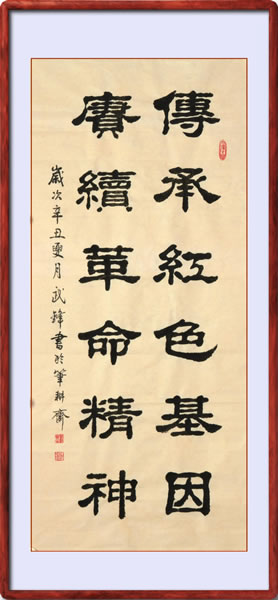 傳承紅色基因
賡續革命精神
歲次辛丑夏月武鋒書於筆耕齋